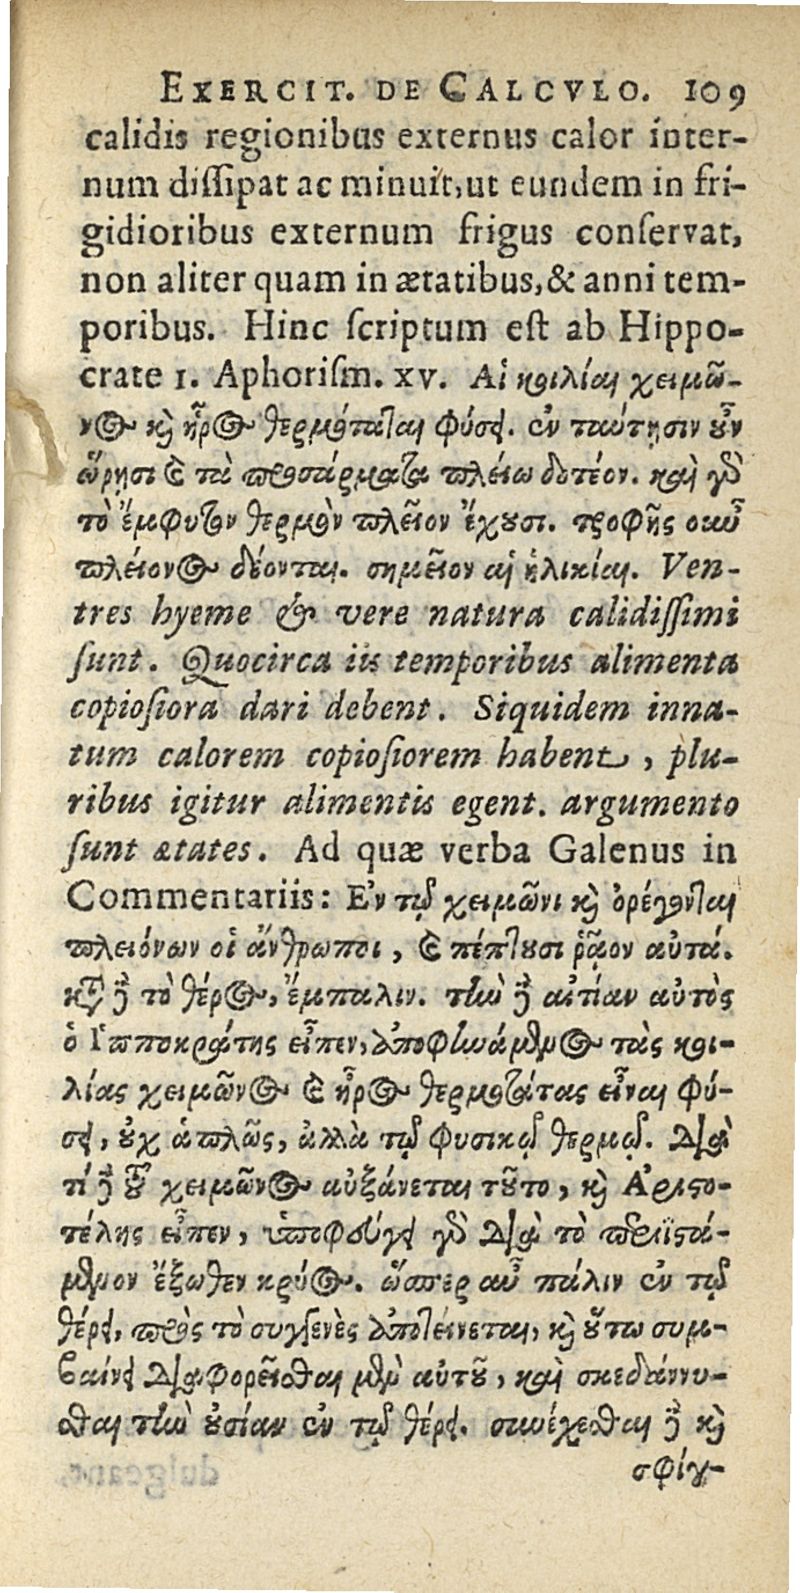 EXERCIT. DE CALCVLO. 109
calidis regionibus externus calor inter-
num dissipat ac minuit, ut eundem in fri-
gidioribus externum frigus conservat,
non aliter quam in ætatibus, & anni tem-
poribus. Hinc scriptum est ab Hippo-
crate 1. Aphorism. XV. Αἱ κοιλίαι χειμῶ-
νος καὶ ἦρος θερμόταται φύσει. ἐν ταύτῃσιν οὖν
ὥρῃσι καὶ τὰ προσάρματα πλείω δοτέον. καὶ γὰρ
τὸ ἔμφυτον θερμὸν πλεῖον ἔχουσι. τροφῆς οὖν
πλείονος δέονται. σημεῖον αἱ ἡλικίαι. Ven-
tres hyeme & vere natura calidissimi
sunt. Quocirca iis temporibus alimenta
copiosiora dari debent. Siquidem inna-
tum calorem copiosiorem habent, plu-
ribus igitur alimentis egent. argumento
sunt ætates. Ad quæ verba Galenus in
Commentariis: Ἐν τῷ χειμῶνι καὶ ὀρέγονται
πλειόνων οἱ ἄνθρωποι, καὶ πέπτουσι ῥᾷον αὐτά.
κατὰ δὲ τὸ θέρος, ἔμπαλιν. τὴν δὲ αἰτίαν αὐτὸς
ὁ Ἱπποκράτης εἶπεν, ἀποφηνάμενος τὰς κοι-
λίας χειμῶνος καὶ ἦρος θερμοτάτας εἶναι φύ-
σει, οὐχ ἁπλῶς, ἀλλὰ τῷ φυσικῷ θερμῷ. Διὰ
τί δὲ τοῦ χειμῶνος αὐξάνεται τοῦτο, καὶ Ἀριστο-
τέλης εἶπεν, ὑποφεύγει γὰρ διὰ τὸ περιϊστά-
μενον ἔξωθεν κρύος. ὥσπερ αὖ πάλιν ἐν τῷ
θέρει, πρὸς τὸ συγγενὲς ἀποτείνεται, καὶ οὕτω συμ-
βαίνει διαφορεῖσθαι μὲν αὐτοῦ, καὶ σκεδάννυ-
σθαι τὴν οὐσίαν ἐν τῷ θέρει. συνέχεσθαι δὲ καὶ
σφίγ-